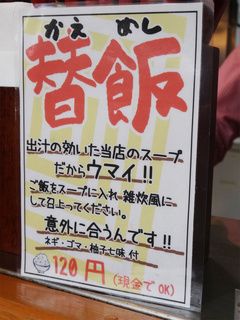 かえ めし
替飯
出汁の効いた当店のスープ
だからウマイ!!
ご飯をスープに入れ雑炊風に
して召上ってください。
意外に合うんです!!
ネギ・ゴマ・柚子七味 付
120円(現金でOK)